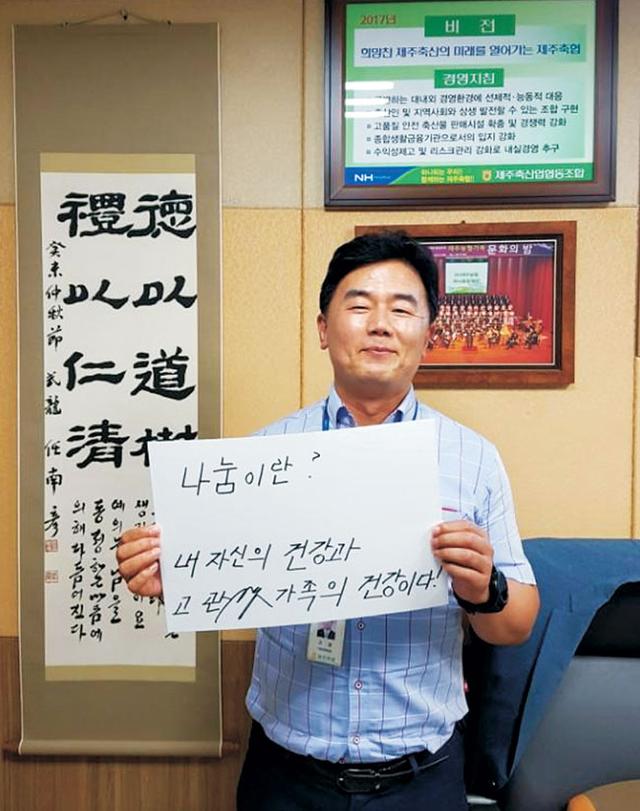 2017년
비 전
희망찬 제주축산의 미래를 열어가는 제주축협
경영지침
대내외 경영환경에 선제적·능동적 대응
및 지역사회와 상생 발전할 수 있는 조합 구현
고품질 안전 축산물 판매시설 확충 및 경쟁력 강화
종합생활금융기관으로서의 입지 강화
수익성제고 및 리스크관리 강화로 내실경영 추구
NH
하나되는 우리!!
함께하는 제주축협!!
제주축산업협동조합
문화의 밤
德以道樹
禮以仁清
癸未仲秋節
나눔이란?
내 자신의 건강과
고 가족의 건강이다!
동정하는 마음에
의해 다듬어진다